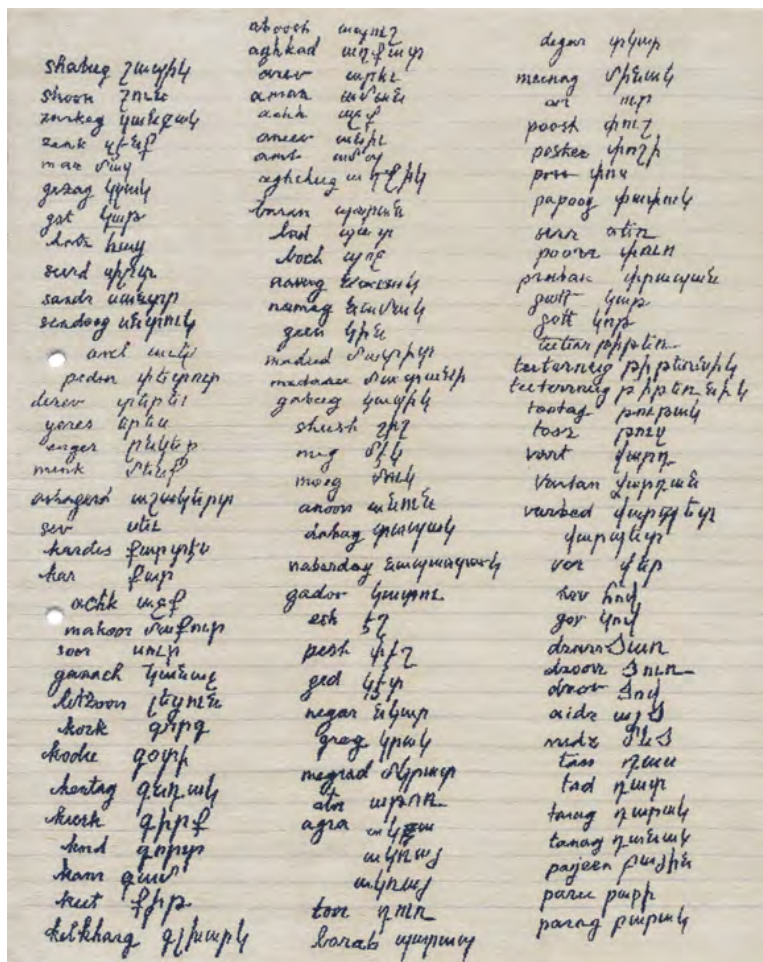 shabeg շապիկ
shoon շուն
zenk զէնք
maz մազ
gezag կզակ
gat կաթ
hatz հաց
seerd սիրտ
sandr սանտր
sendoog սնտուկ
avel աւել
pedoor փետուր
derev տերեւ
yeres երես
enger ընկեր
menk մենք
ashagerd աշակերտ
sev սեւ
kar քար
achk աչք
makoor մաքուր
soor սուր
ganach կանաչ
kork գորգ
kodee գօտի
kedag գետակ
keerk գիրք
kord գորտ
kam գամ
keet քիթ
kelkharg գլխարկ
aboosh ապուշ
aghkad աղքատ
arev արեւ
aman աման
achk աչք
aneev անիւ
amb ամպ
aghcheeg աղջիկ
baran պարան
bad պատ
boch պոչ
navag նաւակ
namag նամակ
geen կին
madeed մատիտ
madanee մատանի
gabeeg կապիկ
sheesh շիշ
meg մէկ
moog մուկ
anoon անուն
dabag տապակ
nabasdag նապաստակ
gadoo կատու
esh էշ
ged կէտ
negar նկար
grag կրակ
megrad մկրատ
ator աթոռ
agra ակռա
ակռայ
ակռայ
toor դուռ
barab պարապ
degar տկար
meenag մինակ
ար
poosh փուշ
poshee փոշի
por փոր
papoog փափուկ
poorr փուռ
gatt կաթ
gott կոթ
teeterrneeg թիթեռնիկ
tootag թութակ
tooz թուզ
vart վարդ
Vartan Վարդան
varbed վարպետ
վարպետ
hov հով
gov կով
dzarr Ծառ
dzoorr Ծուռ
dzov Ծով
aidz այծ
medz մեծ
tas դաս
tad դատ
tarag դարակ
tanag դանակ
pajeen բաժին
paree բարի
parag բարակ